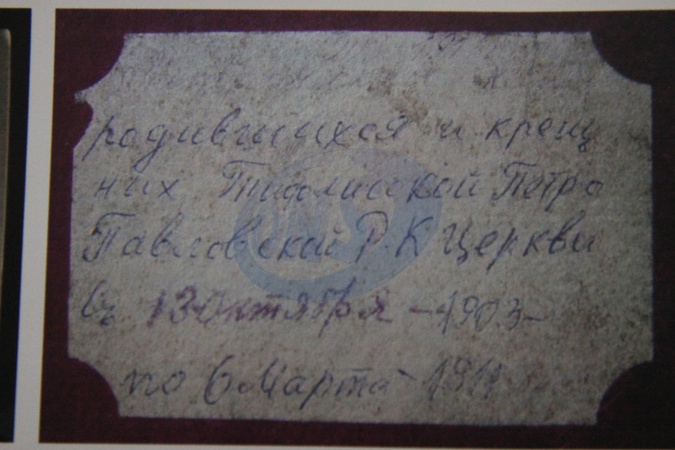 родившихся и крещ
ных Тифлисской Петро
Павловской Р. К Церкви
Съ 13 Октября -1903-
по 6 Марта 1911